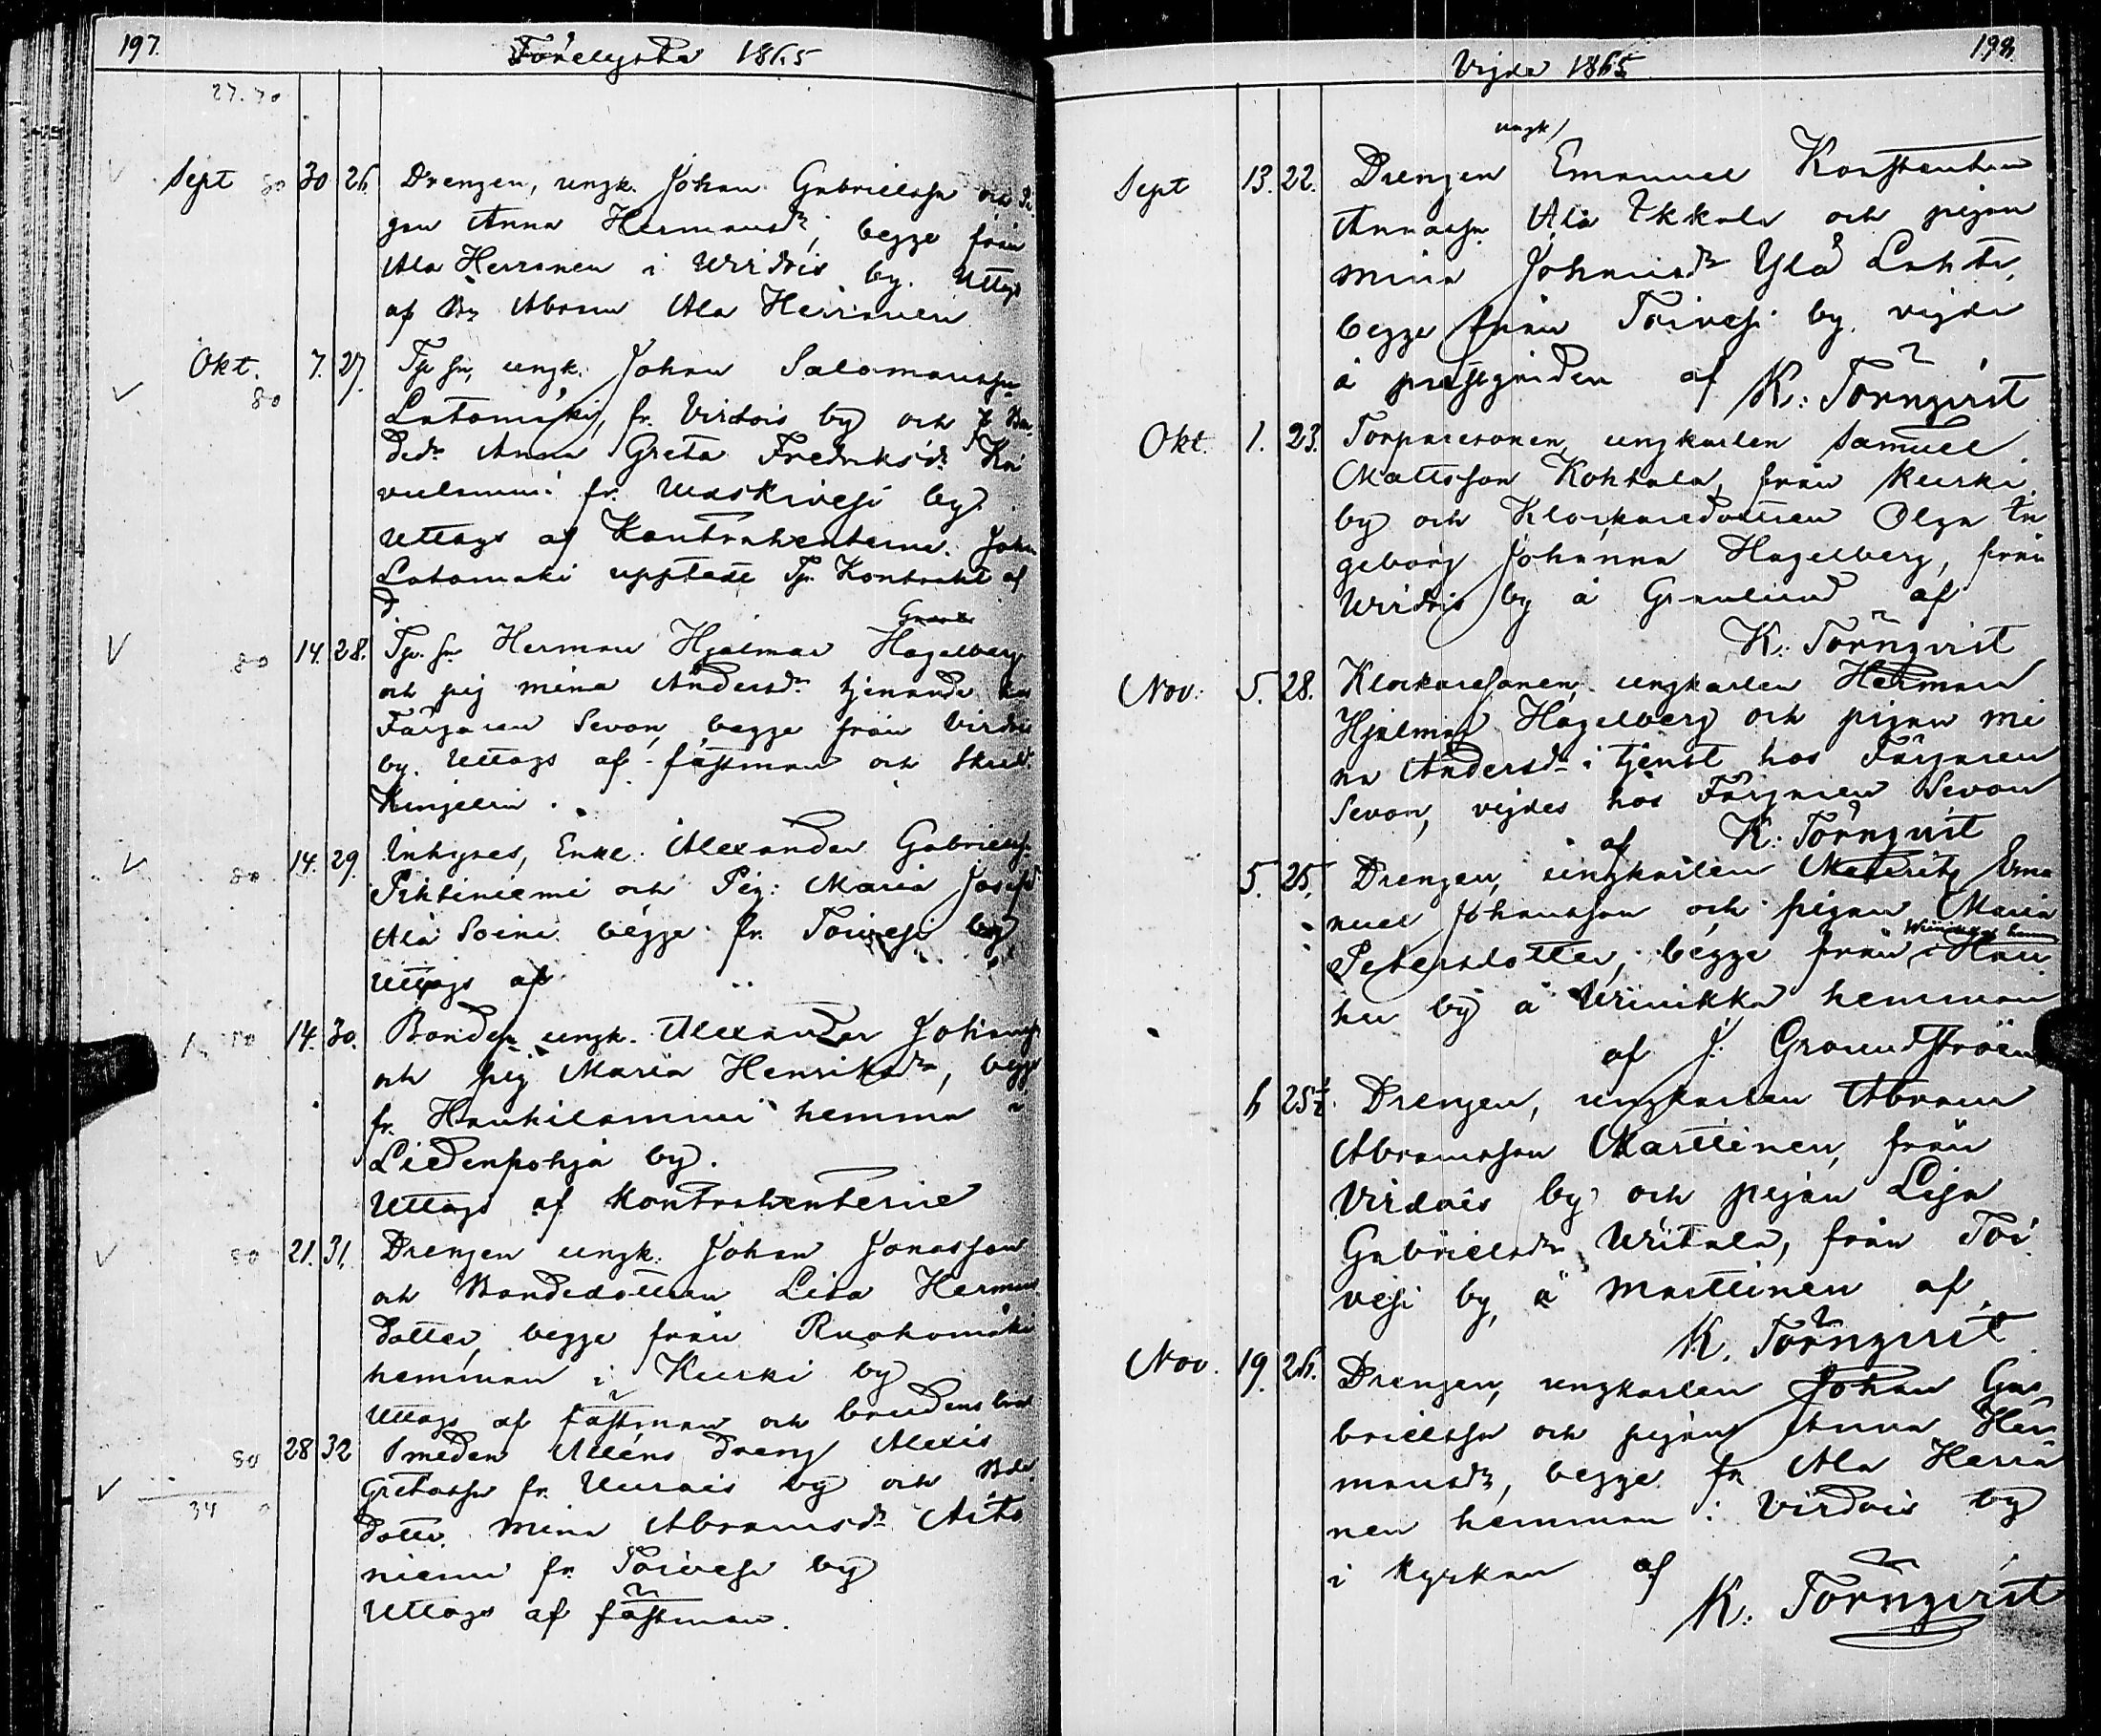 197.
Förelysta 1865
27.70
Sept 80 30 26. Drengen, ungk. Johan Gabrielssn och Pi
gan Anna Hermansdr, begge från
Ala Herranen i Wirdois by. Uttags
af Abram Ala Herranen
Okt. 80 7. 27. Tp sn, ungk. Johan Salomonssn
Latomäki, fr. Virdois by och
Dedr Anna Greta Fredriksdr Koi
vulammi fr. Waskivesi by
Uttags af Kontrahenterne. Johan
Latomäki upptede Tp. Kontrakt af
d.
80 14. 28. Tp. sn Herman Hjalmar Hagelberg
och pig Mina Andersdr tjenande hos
Färgaren Sevon, begge från Virdois
by. Uttags af fästman och Skräd.
Kinjelin.
80 14. 29. Inhyses, Enkl. Alexander Gabrielss.
Pihtiniemi och Pig: Maria Josefsd
Ala Soini begge fr. Toivesi by
Uttags af
14. 30. Bondesn ungk. Alexander Johanss
och pig Maria Henriksdr, begge
fr. Hauhilammi hemma
Liedenpohja by.
Uttags af Kontrahenterne
80 21. 31. Drengen ungk. Johan Jonasson
och Bondedottren Lisa Hermans
dotter, begge från Ruohomäki
hemman i Kurki by
Uttags af fästman och brudens bror
80 28 32 Smeden Alléns dreng Alexis
Gretassn fr. Uurais by och Bde
dotter Mina Abramsdr Aito
niemi fr. Toivesi by
Uttags af fästman.
34
198.
Vigda 1865
ungk/
Sept 13. 22. Drengen Emanuel Konstantin
Annassn Ala Ikkala och pigan
Mina Johansdr Ylä Lahti,
begge från Toivesi by. vigda
å prestgården af K: Törnqvist
Okt. 1. 23. Torparesonen, ungkarlen Samuel
Mattsson Kohtala, från Kurki
by och Klockaredottren Olga In
geborg Johanna Hagelberg, från
Wirdois by å Granlund af
K: Törnqvist
Nov: 5. 28. Klockaresonen, ungkarlen Herman
Hjalmar Hagelberg och pigan Mi
na Andersdr i tjenst hos Färgaren
Sevon, vigdes hos Färgaren Sevon
af K: Törnqvist
5. 25. Drengen, ungkarlen Mauritz Ema
nuel Johansson och pigan Maria
Petersdotter, begge från Hau
hu by å Wiinikka hemman
af J. Groundstroem
6 25½. Drengen, ungkarlen Abram
Abramsson Marttinen, från
Virdois by och pigan Lisa
Gabrielsdr Uritala, från Toi
vesi by, å Marttinen af
K. Törnqvist
Nov. 19. 26. Drengen, ungkarlen Johan Ga
brielssn och pigan Anna Her
mansdr, begge fr. Ala Herra
nen hemman i Virdois by
i kyrkan af
K. Törnqvist